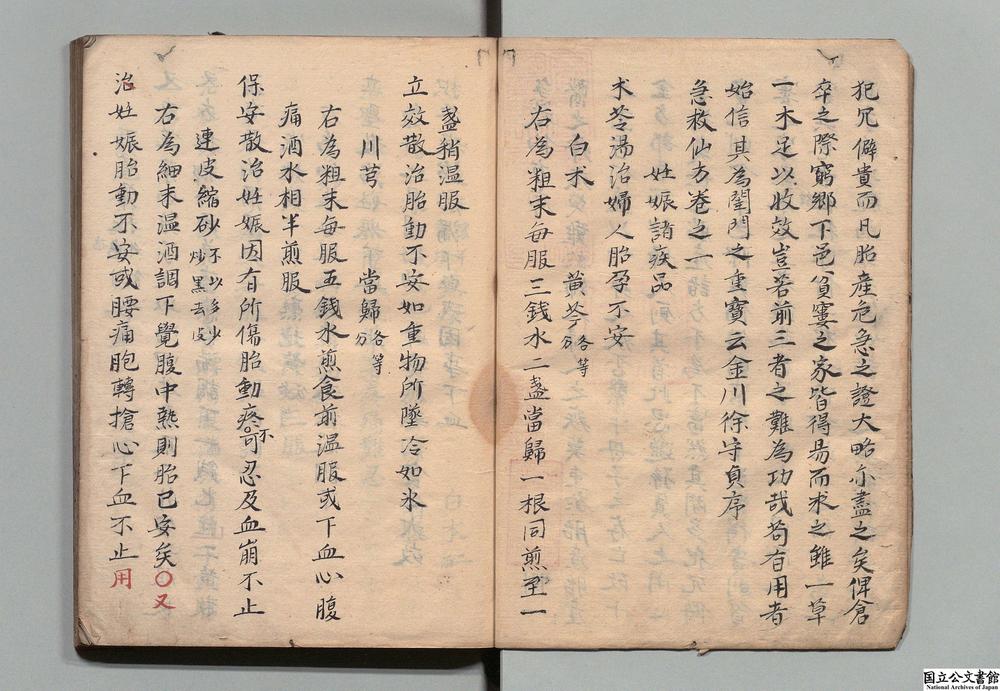 犯冗僻貴而凡胎産危急之證大略亦盡之矣俾倉
卒之際窮郷下邑貧窶之家皆得易而求之雖一草
一木足以收效豈若前二者之難為功哉苟有用者
始信其為閨門之重寶云金川徐守貞序
急救仙方卷之一
妊娠諸疾品
术芩湯治婦人胎孕不安
白术　黄芩各等分
右為粗末每服三錢水二盞當歸一根同煎至一
盞稍温服
立效散治胎動不安如重物所墜冷如氷
川芎　當歸各等分
右為粗末每服五錢水煎食前温服或下血心腹
痛酒水相半煎服
保安散治妊娠因有所傷胎動疼不可忍及血崩不止
連皮縮砂不以多少炒黑去皮
右為細末温酒調下覺腹中熱則胎已安矣〇又
治妊娠胎動不安或腰痛胞轉搶心下血不止用
国立公文書館
National Archives of Japan